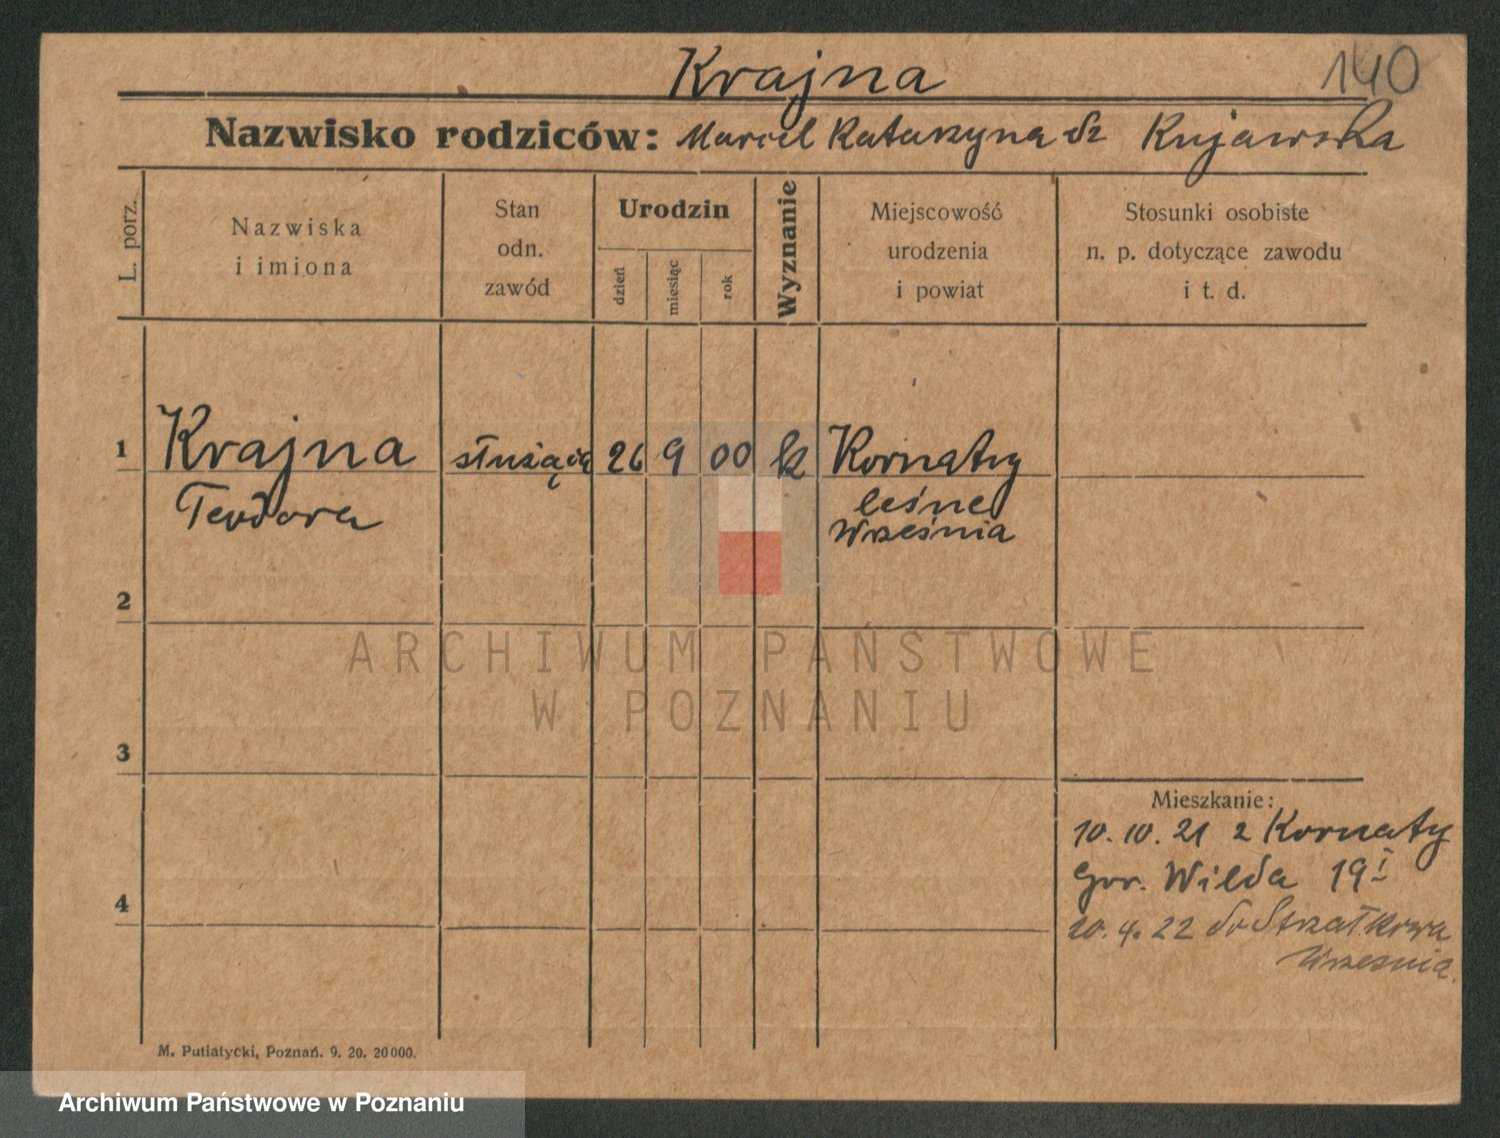 Krajna
140
Nazwisko rodziców: Marcel Katarzyna dz Kujawska
L. porz.
Nazwiska
i imiona
Stan
odn.
zawód
Urodzin
dzień
miesiąc
rok
Wyznanie
Miejscowość
urodzenia
i powiat
Stosunki osobiste
n. p. dotyczące zawodu
i t. d.
1
Krajna
Teodora
służąca
26
9
00
k
Kornaty
leśne
Września
2
3
4
ARCHIWUM PAŃSTWOWE
W POZNANIU
Mieszkanie:
10.10.21 z Kornaty
Gor. Wilda 19 I
20.4.22 do Strzałkowa
Wrzesnia.
M. Putiatycki, Poznań. 9. 20. 20000.
Archiwum Państwowe w Poznaniu